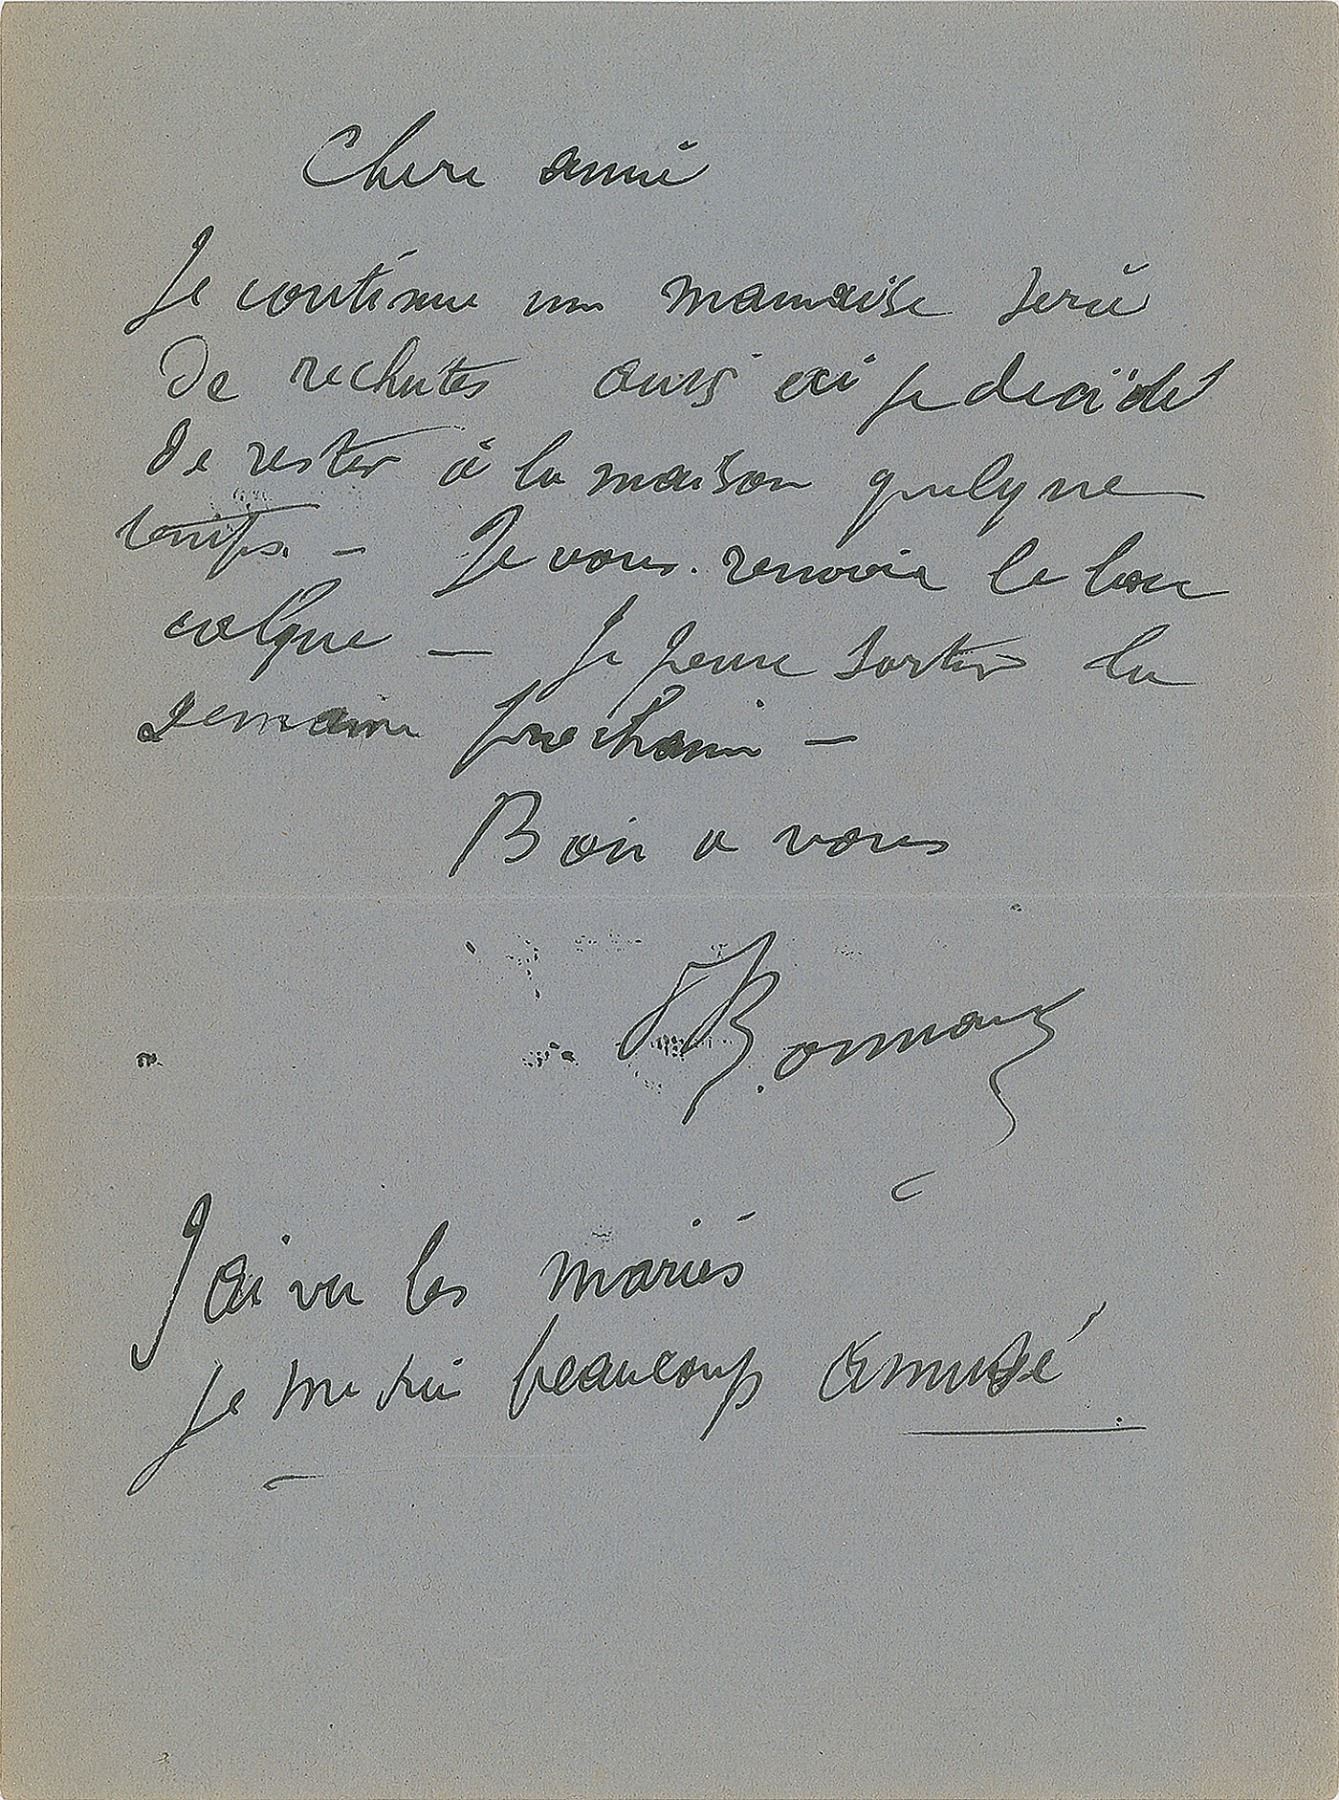 Chere amie
Je continue une mauvaise serie
De rechutes aussi ai je decidé
De rester à la maison quelque
temps. – Je vous renvoie le bon
– Je pense sortir la
semaine prochaine –
Bien a vous
PBonnard
J'ai vu les mariés
Je me suis beaucoup amusé